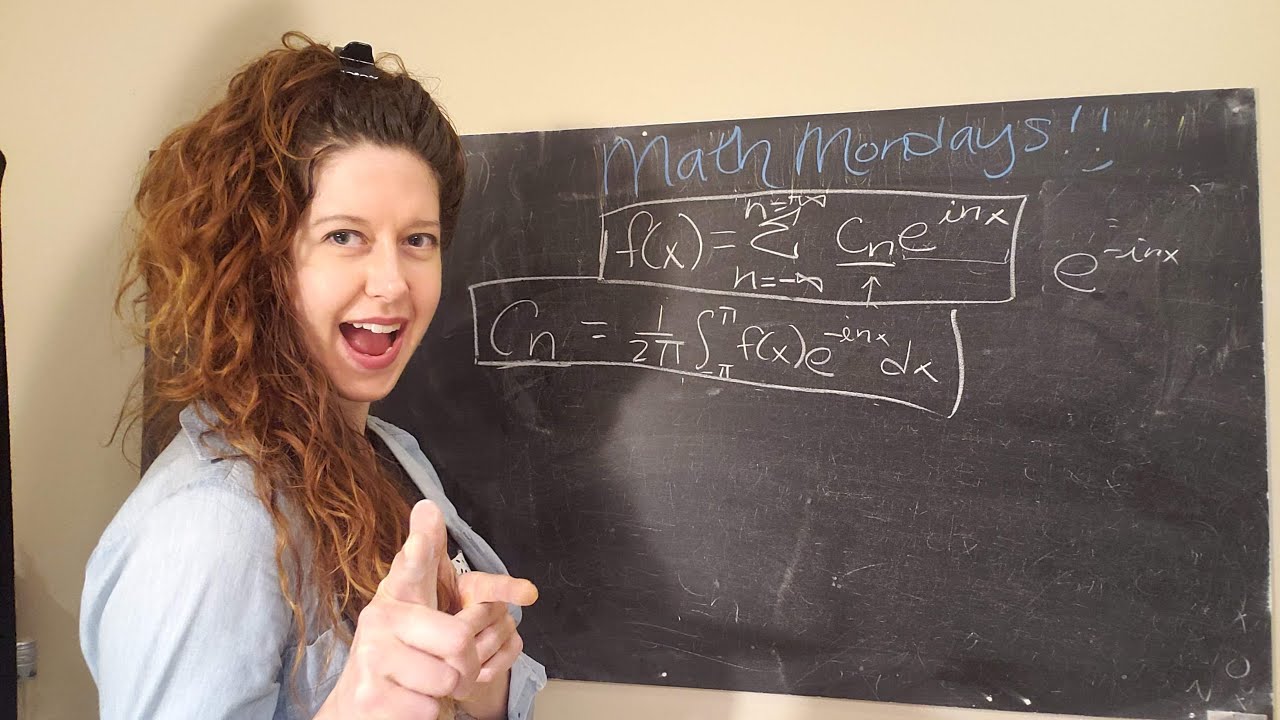 Math Mondays!!
f(x) = ∑_{n=-∞}^{n=+∞} C_n e^{inx}
e^{-inx}
C_n = \frac{1}{2π} ∫_{-π}^{π} f(x) e^{-inx} dx